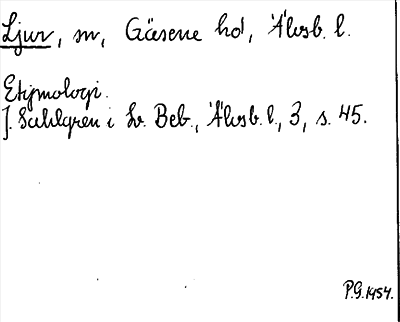 Ljur, sn, Gäsene hd, Älvsb. l.
Etymologi.
J. Sahlgren i Sv. Beb., Älvsb. l., 3, s. 45.
P.G. 1954.